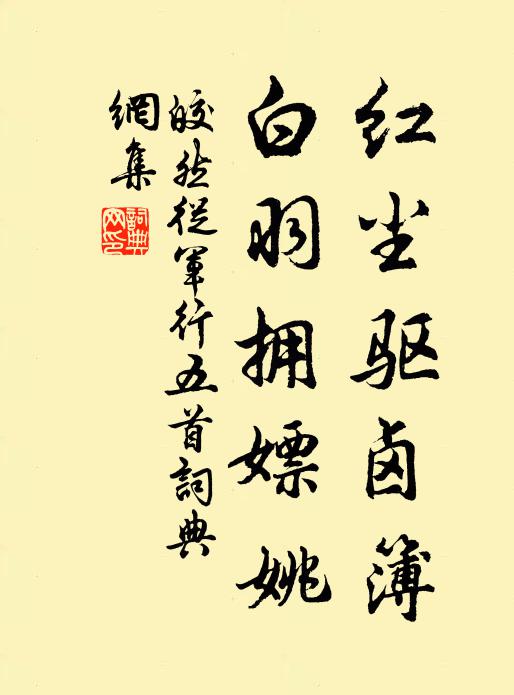 红尘驱卤簿
白羽拥嫖姚
皎然從軍行五首詞典
網集
詞典
网印